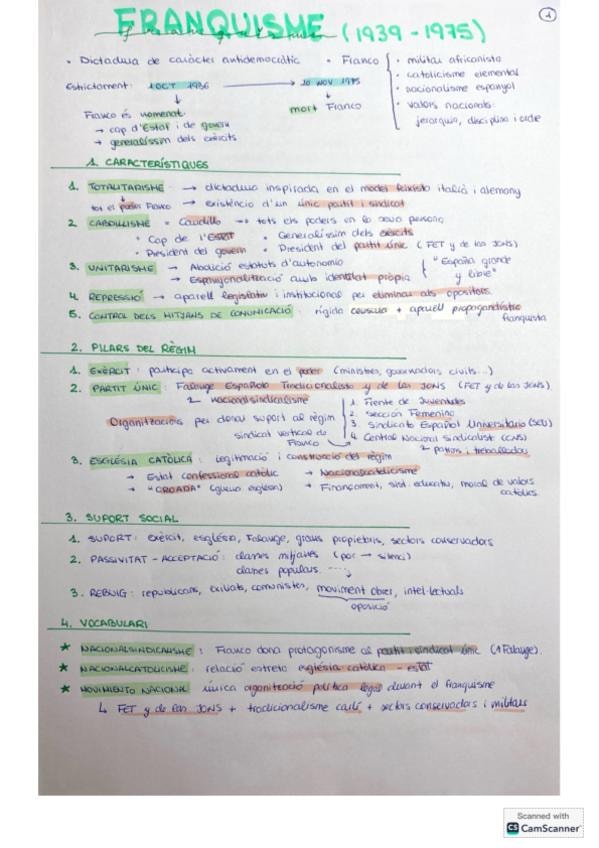 FRANQUISME (1939 - 1975)
1
• Dictadura de caràcter antidemocràtic
• Franco
• militar africanista
• catolicisme elemental
• nacionalisme espanyol
• valors nacionals: jerarquia, disciplina i ordre
Estrictament: 1 OCT 1936 → 20 NOV 1975
Franco és nomenat:
→ cap d'Estat i de govern
→ generalíssim dels exèrcits
mort Franco
1. CARACTERÍSTIQUES
1. TOTALITARISME → dictadura inspirada en el model feixista italià i alemany
tot el poder Franco → existència d'un únic partit i sindicat
2. CABDILLISME • Caudillo → tots els poders en la seva persona
• Cap de l'Estat • Generalíssim dels exèrcits
• President del govern • President del partit únic (FET y de las JONS)
3. UNITARISME → Abolició estatuts d'autonomia
→ Espanyolització amb identitat pròpia
"España grande y libre"
4. REPRESSIÓ → aparell legislatiu i institucional per eliminar als opositors
5. CONTROL DELS MITJANS DE COMUNICACIÓ: rígida censura + aparell propagandístic
franquista
2. PILARS DEL RÈGIM
1. EXÈRCIT: participa activament en el poder (ministres, governadors civils...)
2. PARTIT ÚNIC: Falange Española Tradicionalista y de las JONS (FET y de las JONS)
nacionalsindicalisme
Organitzacions per donar suport al règim
sindicat vertical de Franco
1. Frente de Juventudes
2. Sección Femenina
3. Sindicato Español Universitario (SEU)
4. Central Nacional Sindicalista (CNS)
patrons i treballadors
3. ESGLÉSIA CATÒLICA: legitimació i construcció del règim
→ Estat confessional catòlic → Nacionalcatolicisme
→ "CROADA" (guerra església) → Finançament, sist. educatiu, moral de valors
catòlics
3. SUPORT SOCIAL
1. SUPORT: exèrcit, església, Falange, grans propietaris, sectors conservadors
2. PASSIVITAT - ACCEPTACIÓ: classes mitjanes (por → silenci)
classes populars
3. REBUIG: republicans, exiliats, comunistes, moviment obrer, intel·lectuals
oposició
4. VOCABULARI
★ NACIONALSINDICALISME: Franco dona protagonisme al partit i sindicat únic (Falange).
★ NACIONALCATOLICISME: relació estreta església catòlica - estat
★ MOVIMIENTO NACIONAL única organització política legal durant el franquisme
↳ FET y de las JONS + tradicionalisme carlí + sectors conservadors i militars
Scanned with
CS CamScanner